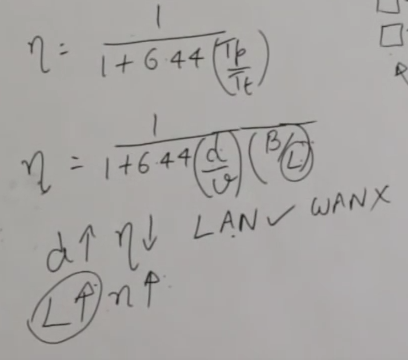 η = 1 / 1 + 6.44 (Tp/Tt)
η = 1 / 1 + 6.44 (d/v) (B/L)
d↑ η↓ LAN✓ WAN X
L↑ η↑